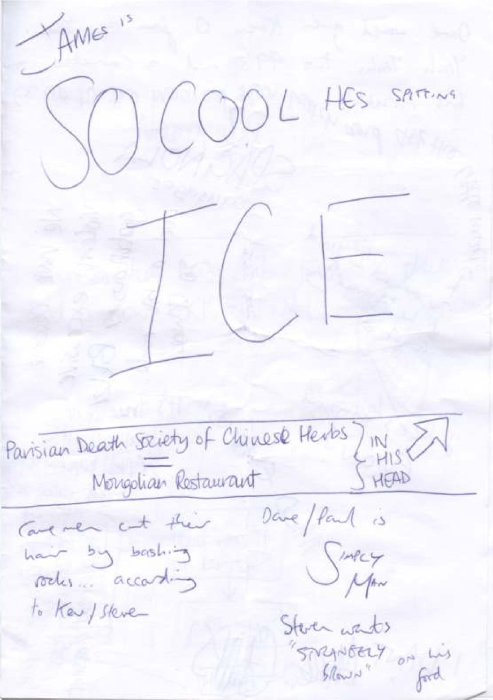 JAMES is
SO COOL HES SPITTING
ICE
Parisian Death Society of Chinese Herbs
=
Mongolian Restaurant
} IN HIS HEAD
Cavemen cut their
hair by bashing
rocks... according
to Kev/Steven
Dave/Paul is
SIMPLY
MAN
Steven wants
"STRANGELY
BROWN" on his
food